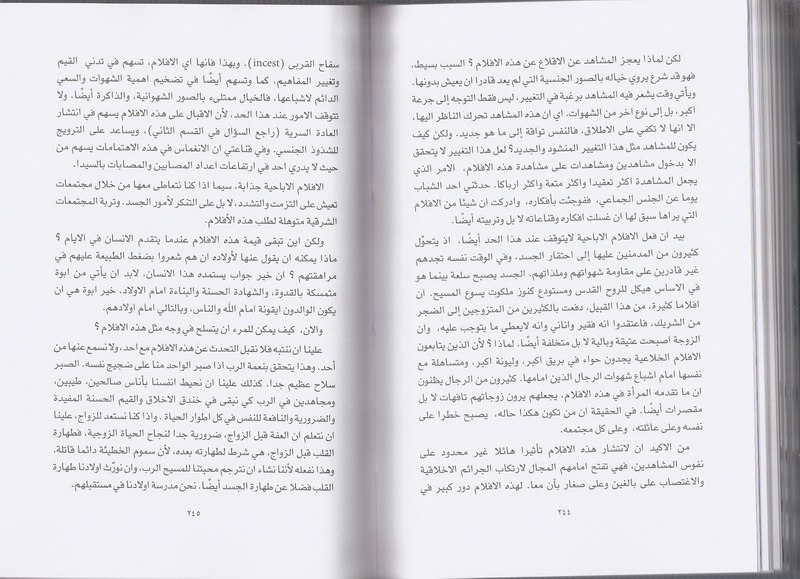 لكن لماذا يعجز المشاهد عن الاقلاع عن هذه الافلام ؟ السبب بسيط،
فهو قد شرع يروي خياله بالصور الجنسية التي لم يعد قادرا ان يعيش بدونها.
ويأتي وقت يشعر فيه المشاهد برغبة في التغيير، ليس فقط التوجه إلى جرعة
اكبر، بل إلى نوع اخر من الشهوات. اي ان هذه المشاهد تحرك الناظر اليها،
الا انها لا تكفي على الاطلاق، فالنفس تواقة إلى ما هو جديد. ولكن كيف
يكون للمشاهد مثل هذا التغيير المنشود والجديد؟ لعل هذا التغيير لا يتحقق
الا بدخول مشاهدين ومشاهدات على مشاهدة هذه الافلام، الامر الذي
يجعل المشاهدة اكثر تعقيدا واكثر متعة واكثر ارباكا. حدثني احد الشباب
يوما عن الجنس الجماعي، ففوجئت بأفكاره، وادركت ان شيئا من الافلام
التي يراها سبق لها ان غسلت افكاره وقناعاته لا بل وتربيته أيضًا.
بيد ان فعل الافلام الاباحية لايتوقف عند هذا الحد أيضًا، اذ يتحوّل
كثيرون من المدمنين عليها إلى احتقار الجسد، وفي الوقت نفسه تجدهم
غير قادرين على مقاومة شهواتهم وملذاتهم. الجسد يصبح سلعة بينما هو
في الاساس هيكل للروح القدس ومستودع كنوز ملكوت يسوع المسيح. ان
افلاما كثيرة، من هذا القبيل، دفعت بالكثيرين من المتزوجين إلى الضجر
من الشريك، فاعتقدوا انه فقير واناني وانه لايعطي ما يتوجب عليه، وان
الزوجة اصبحت عتيقة وبالية لا بل متخلفة أيضًا. لماذا ؟ لأن الذين يتابعون
الافلام الخلاعية يجدون حواء في بريق اكبر، وليونة اكبر، ومتساهلة مع
نفسها امام اشباع شهوات الرجال الذين امامها. كثيرون من الرجال يظنون
ان ما تقدمه المرأة في هذه الافلام، يجعلهم يرون زوجاتهم تافهات لا بل
مقصرات أيضًا. في الحقيقة ان من تكون هكذا حاله، يصبح خطرا على
نفسه وعلى عائلته، وعلى كل مجتمعه.
من الاكيد ان لانتشار هذه الافلام تأثيرا هائلا غير محدود على
نفوس المشاهدين، فهي تفتح امامهم المجال لارتكاب الجرائم الاخلاقية
والاغتصاب على بالغين وعلى صغار بآن معا. لهذه الافلام دور كبير في
٢٤٤
سفاح القربى (incest). وبهذا فانها اي الافلام، تسهم في تدني القيم
وتغيير المفاهيم، كما وتسهم أيضًا في تضخيم اهمية الشهوات والسعي
الدائم لاشباعها، فالخيال ممتلىء بالصور الشهوانية، والذاكرة أيضًا. ولا
تتوقف الامور عند هذا الحد، لأن الاقبال على هذه الافلام يسهم في انتشار
العادة السرية (راجع السؤال في القسم الثاني)، ويساعد على الترويج
للشذوذ الجنسي. وفي قناعتي ان الانغماس في هذه الاهتمامات يسهم من
حيث لا يدري احد في ارتفاعات اعداد المصابين والمصابات بالسيدا.
الافلام الاباحية جذابة، سيما اذا كنا نتعاطى معها من خلال مجتمعات
تعيش على التزمت والتشدد، لا بل على التنكر لأمور الجسد. وتربة المجتمعات
الشرقية متوهلة لطلب هذه الأفلام.
ولكن اين تبقى قيمة هذه الافلام عندما يتقدم الانسان في الايام ؟
ماذا يمكنه ان يقول عنها لأولاده ان هم شعروا بضغط الطبيعة عليهم في
مراهقتهم ؟ ان خير جواب يستمده هذا الانسان، لابد ان يأتي من ابوة
متمسكة بالقدوة، والشهادة الحسنة والبناءة امام الاولاد. خير ابوة هي ان
يكون الوالدون ايقونة امام الله والناس، وبالتالي امام اولادهم.
والان، كيف يمكن للمرء ان يتسلح في وجه مثل هذه الافلام ؟
علينا ان ننتبه فلا نقبل التحدث عن هذه الافلام مع احد، ولا نسمع عنها من
أحد. وهذا يتحقق بنعمة الرب اذا صبر الواحد منا على ضجيج نفسه. الصبر
سلاح عظيم جدا. كذلك علينا ان نحيط انفسنا بأناس صالحين، طيبين،
ومجاهدين في الرب كي نبقى في خندق الاخلاق والقيم الحسنة المفيدة
والضرورية والنافعة للنفس في كل اطوار الحياة . واذا كنا نستعد للزواج، علينا
ان نتعلم ان العفة قبل الزواج، ضرورية جدا لنجاح الحياة الزوجية، فطهارة
القلب قبل الزواج، هي شرط لطهارته بعده، لأن سموم الخطيئة دائما قاتلة.
وهذا نفعله لأننا نشاء ان نترجم محبتنا للمسيح الرب، وان نورّث اولادنا طهارة
القلب فضلا عن طهارة الجسد أيضًا. نحن مدرسة اولادنا في مستقبلهم.
٢٤٥